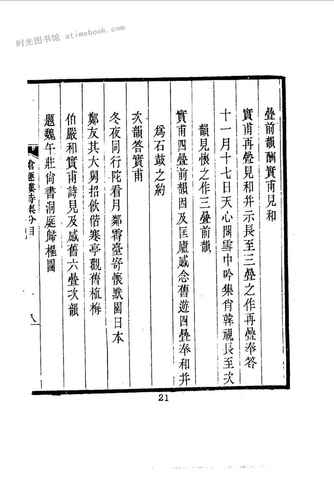 时光图书馆 atimebook.com
疊前韻酬實甫見和
實甫再疊見和并示長至三疊之作再疊奉答
十一月十七日天心閣雪中吟集肖韓視長至次
韻見懷之作三疊前韻
實甫四疊前韻因及匡廬感念舊遊四疊奉和并
為石鼓之約
次韻答實甫
冬夜同行陀看月鄰霄臺寄懷默園日本
鄭友其大舅招飲偕寒亭觀舊植梅
伯嚴和實甫詩見及感舊六疊次韻
題魏午莊尚書洞庭歸櫂圖
詩集分目
八
21